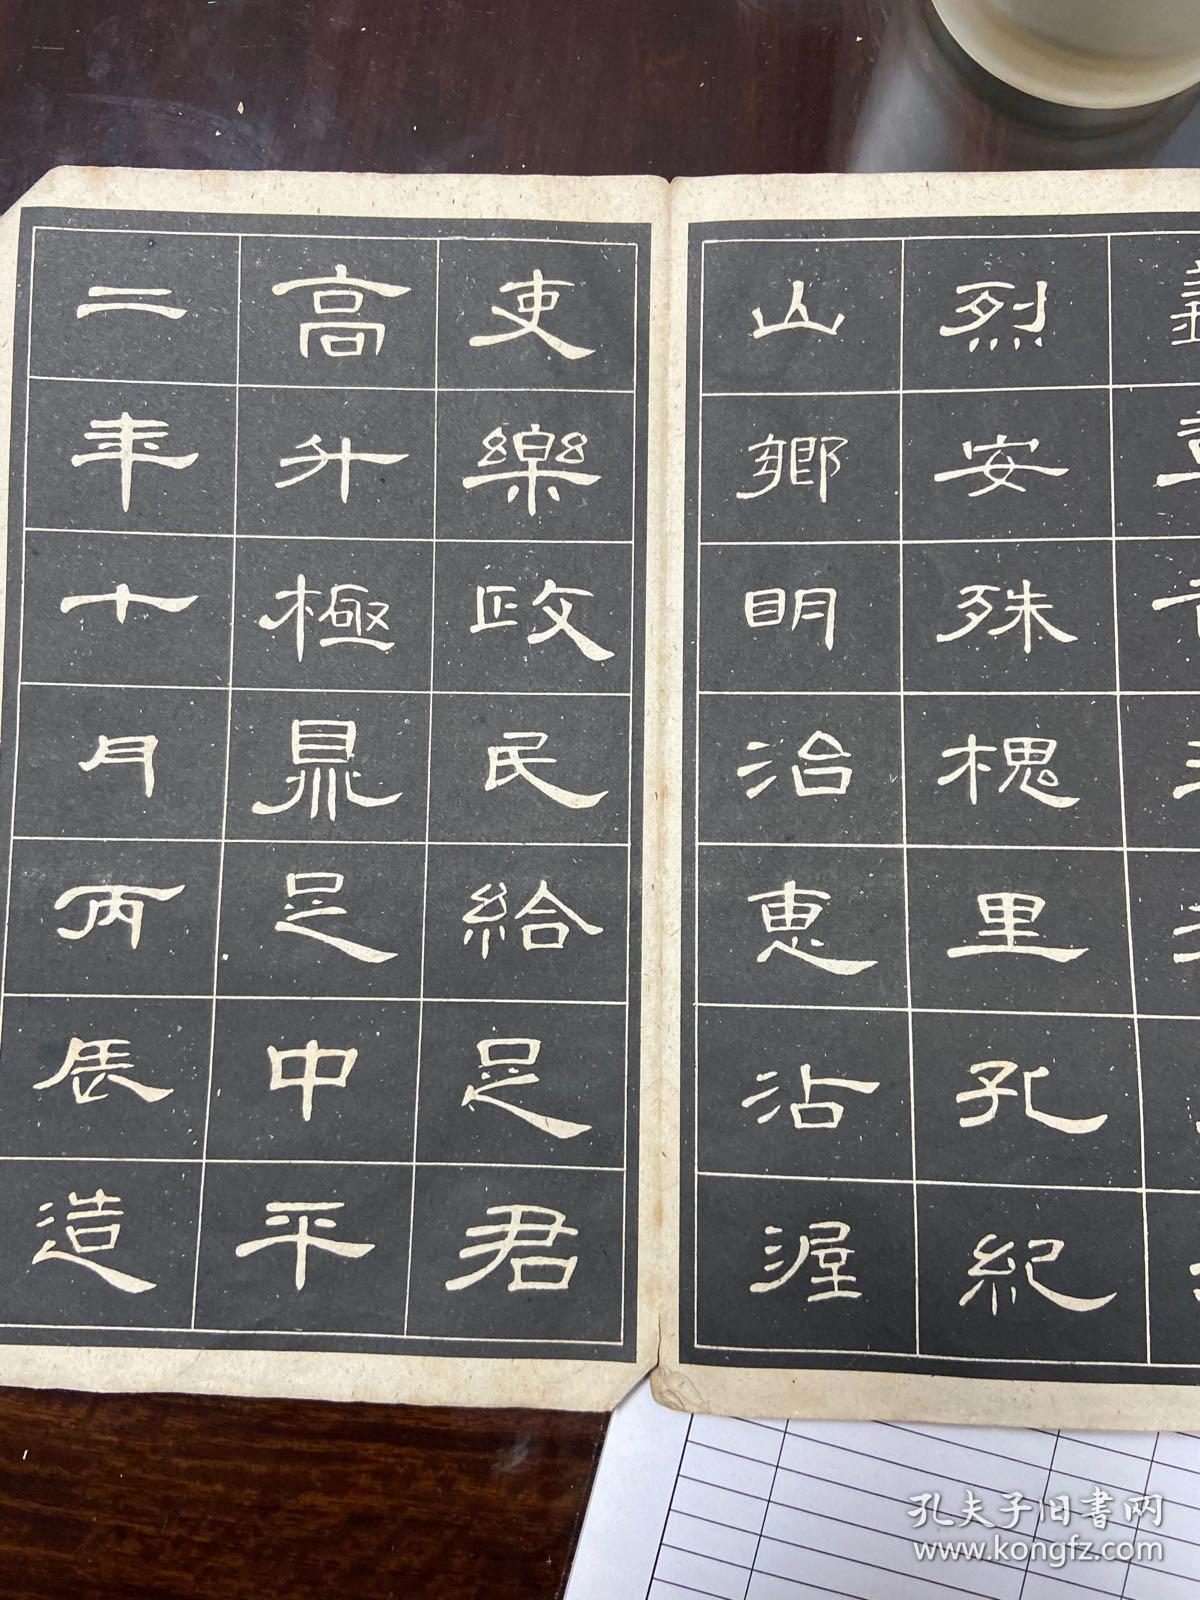 烈安殊槐里孔紀
山鄉明治惠沾渥
吏樂政民給足君
高升極鼎足中平
二年十月丙辰造
孔夫子旧書网
www.kongfz.com